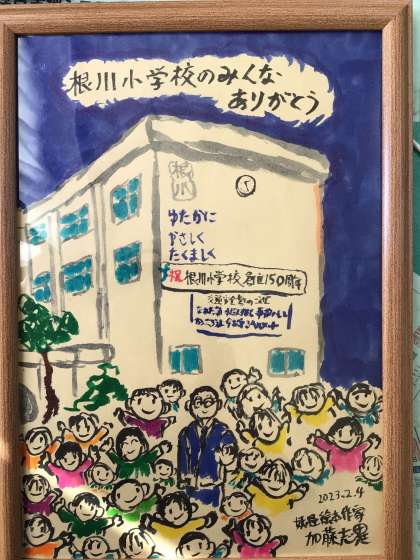 根川小学校のみんな
ありがとう
根川
ゆたかに
やさしく
たくましく
祝 根川小学校創立150周年
2023.2.4
妖怪絵本作家
加藤志異